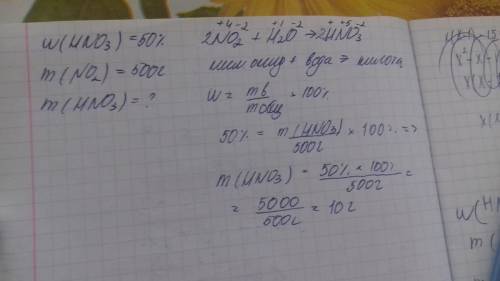 w(HNO₃) = 50%
m(NO₂) = 500г
m(HNO₃) = ?
+4 -2 +1 -2 + +5 -2
2NO₂ + H₂O → 2HNO₃
оксид + вода → кислота
w = mв/mобщ × 100%
50% = m(HNO₃)/500г × 100% =>
m(HNO₃) = 50% × 100%/500г =
= 5000/500г = 10г
x² - x
w(HN
m(